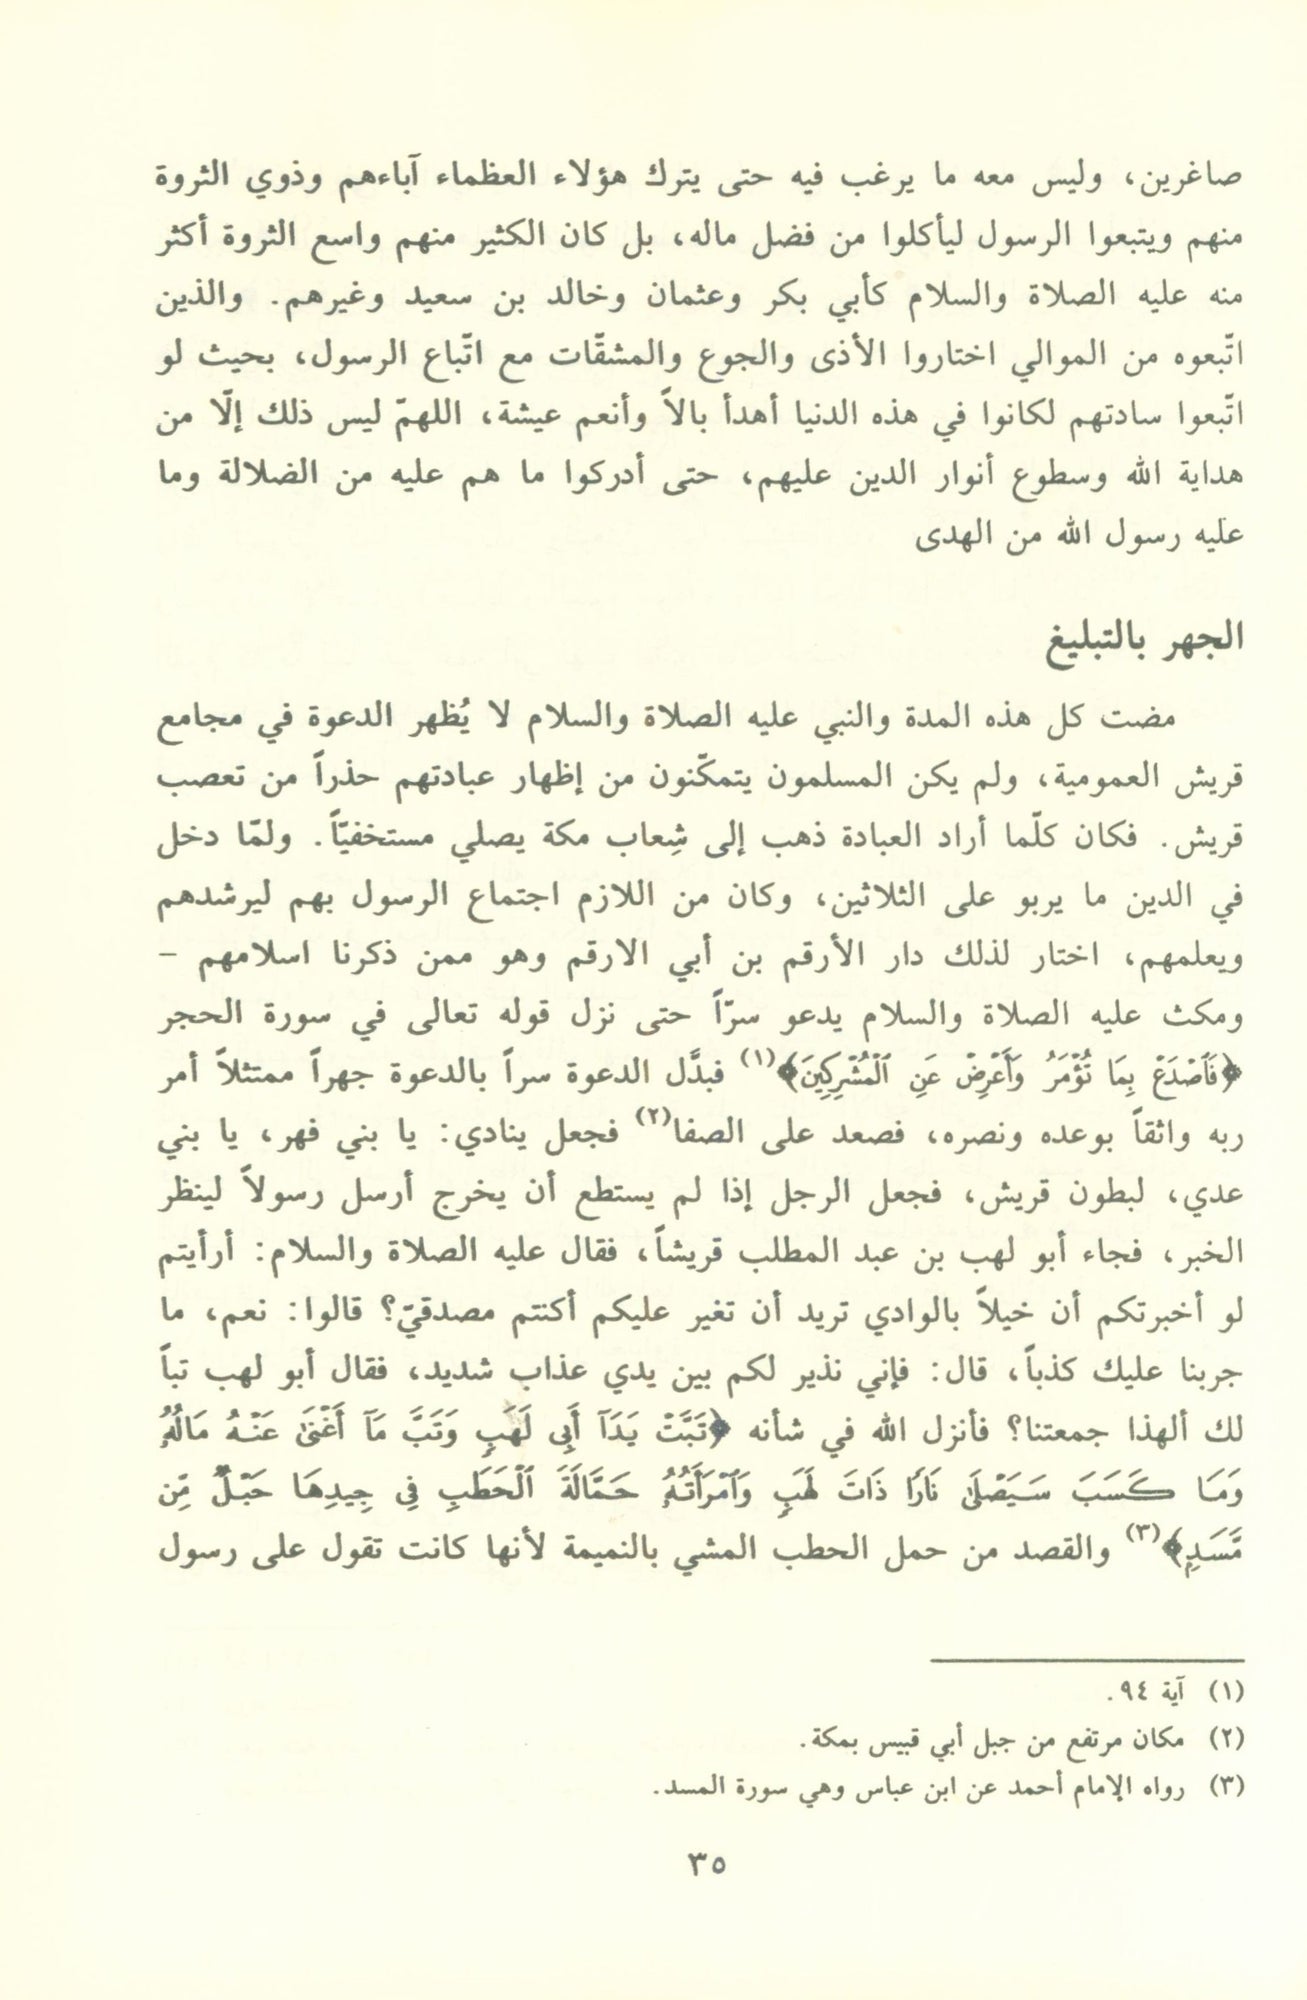 صاغرين، وليس معه ما يرغب فيه حتى يترك هؤلاء العظماء آباءهم وذوي الثروة
منهم ويتبعوا الرسول ليأكلوا من فضل ماله، بل كان الكثير منهم واسع الثروة أكثر
منه عليه الصلاة والسلام كأبي بكر وعثمان وخالد بن سعيد وغيرهم. والذين
اتّبعوه من الموالي اختاروا الأذى والجوع والمشقّات مع اتّباع الرسول، بحيث لو
اتّبعوا سادتهم لكانوا في هذه الدنيا أهدأ بالاً وأنعم عيشة، اللهمّ ليس ذلك إلّا من
هداية الله وسطوع أنوار الدين عليهم، حتى أدركوا ما هم عليه من الضلالة وما
عليه رسول الله من الهدى
الجهر بالتبليغ
مضت كل هذه المدة والنبي عليه الصلاة والسلام لا يُظهر الدعوة في مجامع
قريش العمومية، ولم يكن المسلمون يتمكّنون من إظهار عبادتهم حذراً من تعصب
قريش. فكان كلّما أراد العبادة ذهب إلى شِعاب مكة يصلي مستخفيّاً. ولمّا دخل
في الدين ما يربو على الثلاثين، وكان من اللازم اجتماع الرسول بهم ليرشدهم
ويعلمهم، اختار لذلك دار الأرقم بن أبي الارقم وهو ممن ذكرنا اسلامهم -
ومكث عليه الصلاة والسلام يدعو سرّاً حتى نزل قوله تعالى في سورة الحجر
﴿فَٱصۡدَعۡ بِمَا تُؤۡمَرُ وَأَعۡرِضۡ عَنِ ٱلۡمُشۡرِكِينَ﴾(١) فبدَّل الدعوة سراً بالدعوة جهراً ممتثلاً أمر
ربه واثقاً بوعده ونصره، فصعد على الصفا(٢) فجعل ينادي: يا بني فهر، يا بني
عدي، لبطون قريش، فجعل الرجل إذا لم يستطع أن يخرج أرسل رسولاً لينظر
الخبر، فجاء أبو لهب بن عبد المطلب قريشاً، فقال عليه الصلاة والسلام: أرأيتم
لو أخبرتكم أن خيلاً بالوادي تريد أن تغير عليكم أكنتم مصدقيّ؟ قالوا: نعم، ما
جربنا عليك كذباً، قال: فإني نذير لكم بين يدي عذاب شديد، فقال أبو لهب تباً
لك ألهذا جمعتنا؟ فأنزل الله في شأنه ﴿تَبَّتۡ يَدَآ أَبِي لَهَبٖ وَتَبَّ مَآ أَغۡنَىٰ عَنۡهُ مَالُهُۥ
وَمَا كَسَبَ سَيَصۡلَىٰ نَارٗا ذَاتَ لَهَبٖ وَٱمۡرَأَتُهُۥ حَمَّالَةَ ٱلۡحَطَبِ فِي جِيدِهَا حَبۡلٞ مِّن
مَّسَدِۭ﴾(٣) والقصد من حمل الحطب المشي بالنميمة لأنها كانت تقول على رسول
(١) آية ٩٤.
(٢) مكان مرتفع من جبل أبي قبيس بمكة.
(٣) رواه الإمام أحمد عن ابن عباس وهي سورة المسد.
٣٥